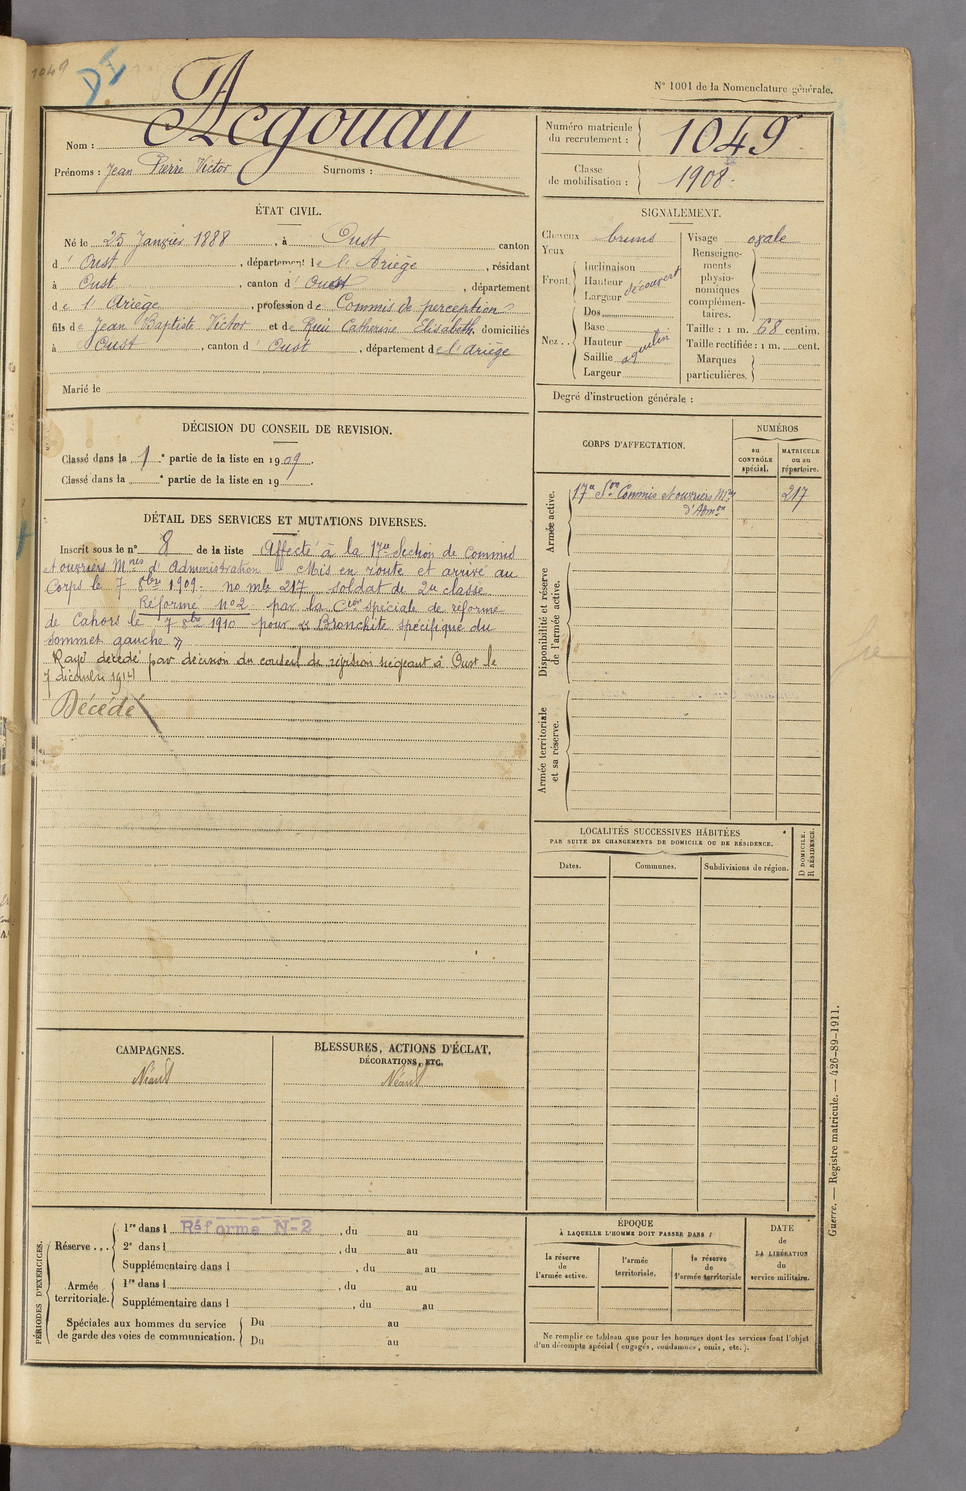 1049
N° 1001 de la Nomenclature générale.
Nom : Acgouau
Prénoms : Jean Pierre Victor Surnoms :
Numéro matricule du recrutement : 1049
Classe de mobilisation : 1908.
ÉTAT CIVIL.
Né le 25 Janvier 1888, à Oust canton
d' Oust, département de l'Ariège, résidant
à Oust, canton d' Oust, département
de l'Ariège, profession de Commis de perception
fils de Jean Baptiste Victor et de Catherine Elisabeth, domiciliés
à Oust, canton d' Oust, département de l'Ariège
Marié le
SIGNALEMENT.
Cheveux bruns
Yeux
Front. Inclinaison
Hauteur découvert
Largeur
Nez . . Dos
Base
Hauteur
Saillie aquilin
Largeur
Visage ovale
Renseignements physionomiques complémentaires.
Taille : 1 m. 68 centim.
Taille rectifiée : 1 m. cent.
Marques particulières.
Degré d'instruction générale :
DÉCISION DU CONSEIL DE REVISION.
Classé dans la 1e partie de la liste en 1909.
Classé dans la e partie de la liste en 19 .
CORPS D'AFFECTATION.
NUMÉROS
au CONTRÔLE spécial.
MATRICULE ou au répertoire.
Armée active.
17e Son Commis et ouvriers Mres 217
d'Admon
Disponibilité et réserve de l'armée active.
Armée territoriale et sa réserve.
DÉTAIL DES SERVICES ET MUTATIONS DIVERSES.
Inscrit sous le n° 8 de la liste Affecté à la 17e Section de Commis
et ouvriers Mres d'Administration Mis en route et arrivé au
Corps le 7 8bre 1909. no mle 217 soldat de 2e classe
Réformé No 2 par la Cion spéciale de réforme
de Cahors le 7 8bre 1910 pour « Bronchite spécifique du
sommet gauche »
Rayé décédé par décision du conseil de révision siégeant à Oust le
7 décembre 1914
Décédé
LOCALITÉS SUCCESSIVES HABITÉES
PAR SUITE DE CHANGEMENTS DE DOMICILE OU DE RÉSIDENCE.
Dates.
Communes.
Subdivisions de région.
D DOMICILE.
R RÉSIDENCE.
CAMPAGNES.
Néant
BLESSURES, ACTIONS D'ÉCLAT,
DÉCORATIONS, ETC.
Néant
PÉRIODES D'EXERCICES.
Réserve . . . 1re dans l Réformé N-2, du au
2e dans l , du au
Supplémentaire dans l , du au
Armée territoriale. 1re dans l , du au
Supplémentaire dans l , du au
Spéciales aux hommes du service de garde des voies de communication. Du au
Du au
ÉPOQUE
À LAQUELLE L'HOMME DOIT PASSER DANS :
la réserve de l'armée active.
l'armée territoriale.
la réserve de l'armée territoriale
DATE de LA LIBÉRATION du service militaire.
Ne remplir ce tableau que pour les hommes dont les services font l'objet
d'un décompte spécial (engagés, condamnés, omis, etc.).
Guerre. — Registre matricule. — 426-89-1911.